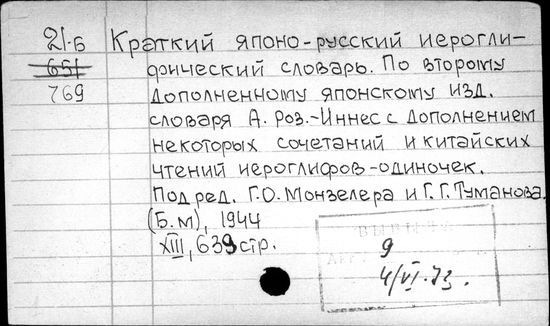 21-Б Краткий японо-русский иерогли-
651 фический словарь. По второму
769 дополненному японскому изд.
словаря А. Роз.-Иннес с дополнением
некоторых сочетаний и китайских
чтений иероглифов-одиночек.
Под ред. Г.О. Монзелера и Г.Г. Туманова.
(Б.м), 1944
XIII, 639 стр.
9
4/VI-73.